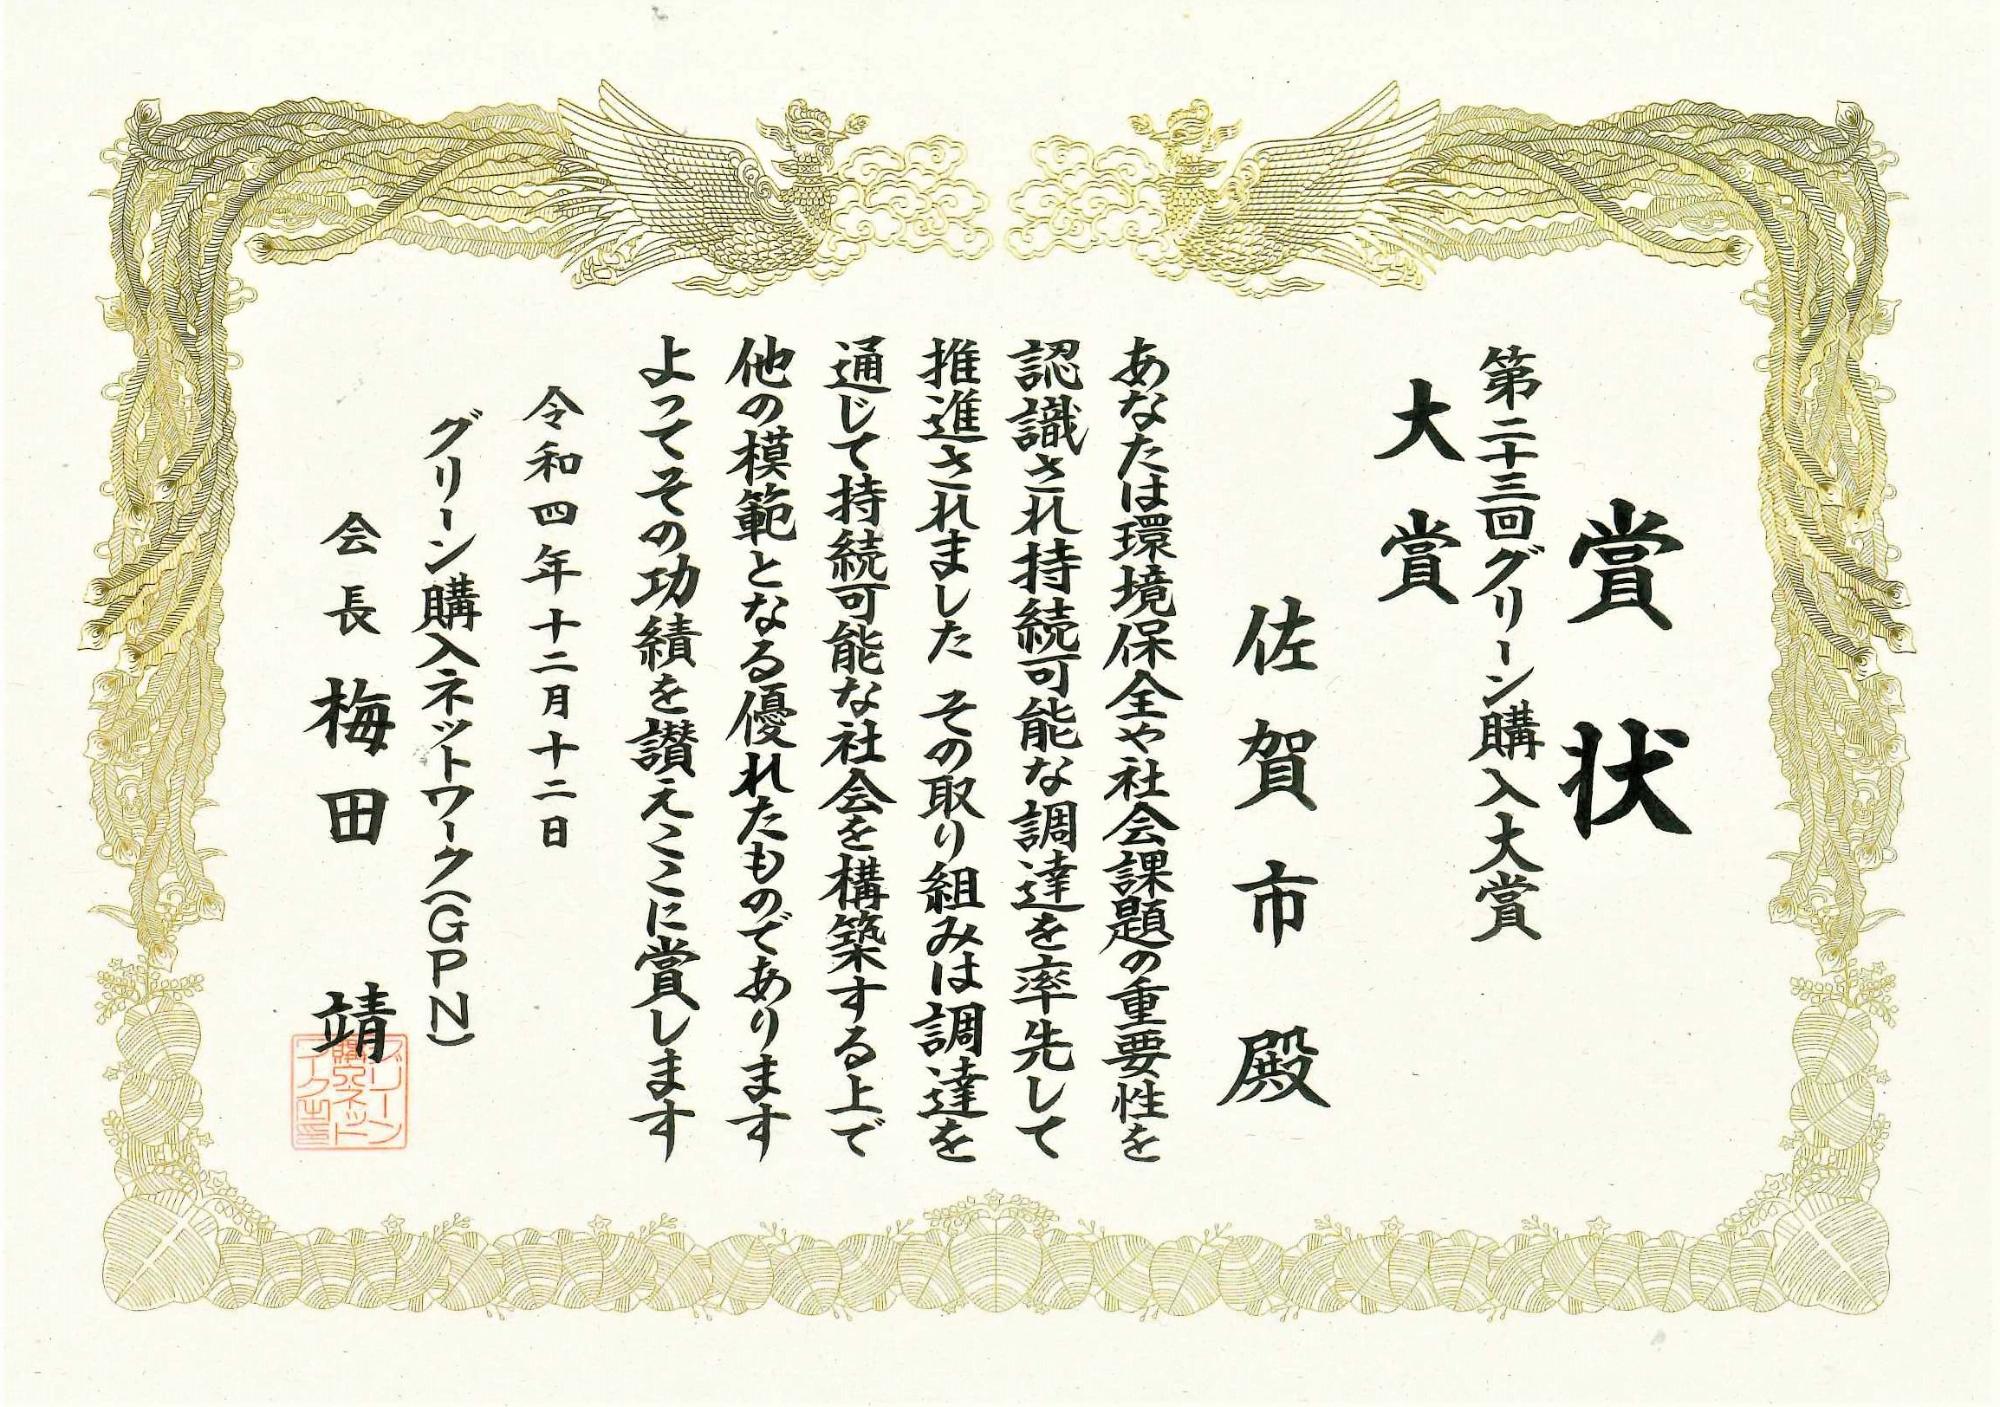 賞状
第二十三回グリーン購入大賞
大賞
佐賀市殿
あなたは環境保全や社会課題の重要性を
認識され持続可能な調達を率先して
推進されました その取り組みは調達を
通じて持続可能な社会を構築する上で
他の模範となる優れたものであります
よってその功績を讃えここに賞します
令和四年十二月十二日
グリーン購入ネットワーク(GPN)
会長 梅田 靖
グリーン
購入ネット
ワーク之印